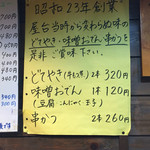 昭和23年創業
屋台当時から変わらぬ味の
どてやき・味噌おでん・串かつを
是非ご賞味下さい。
どてやき(牛すじ) 2本 320円
味噌おでん 1本 120円
(豆腐 こんにゃく 玉子)
串かつ 2本 260円